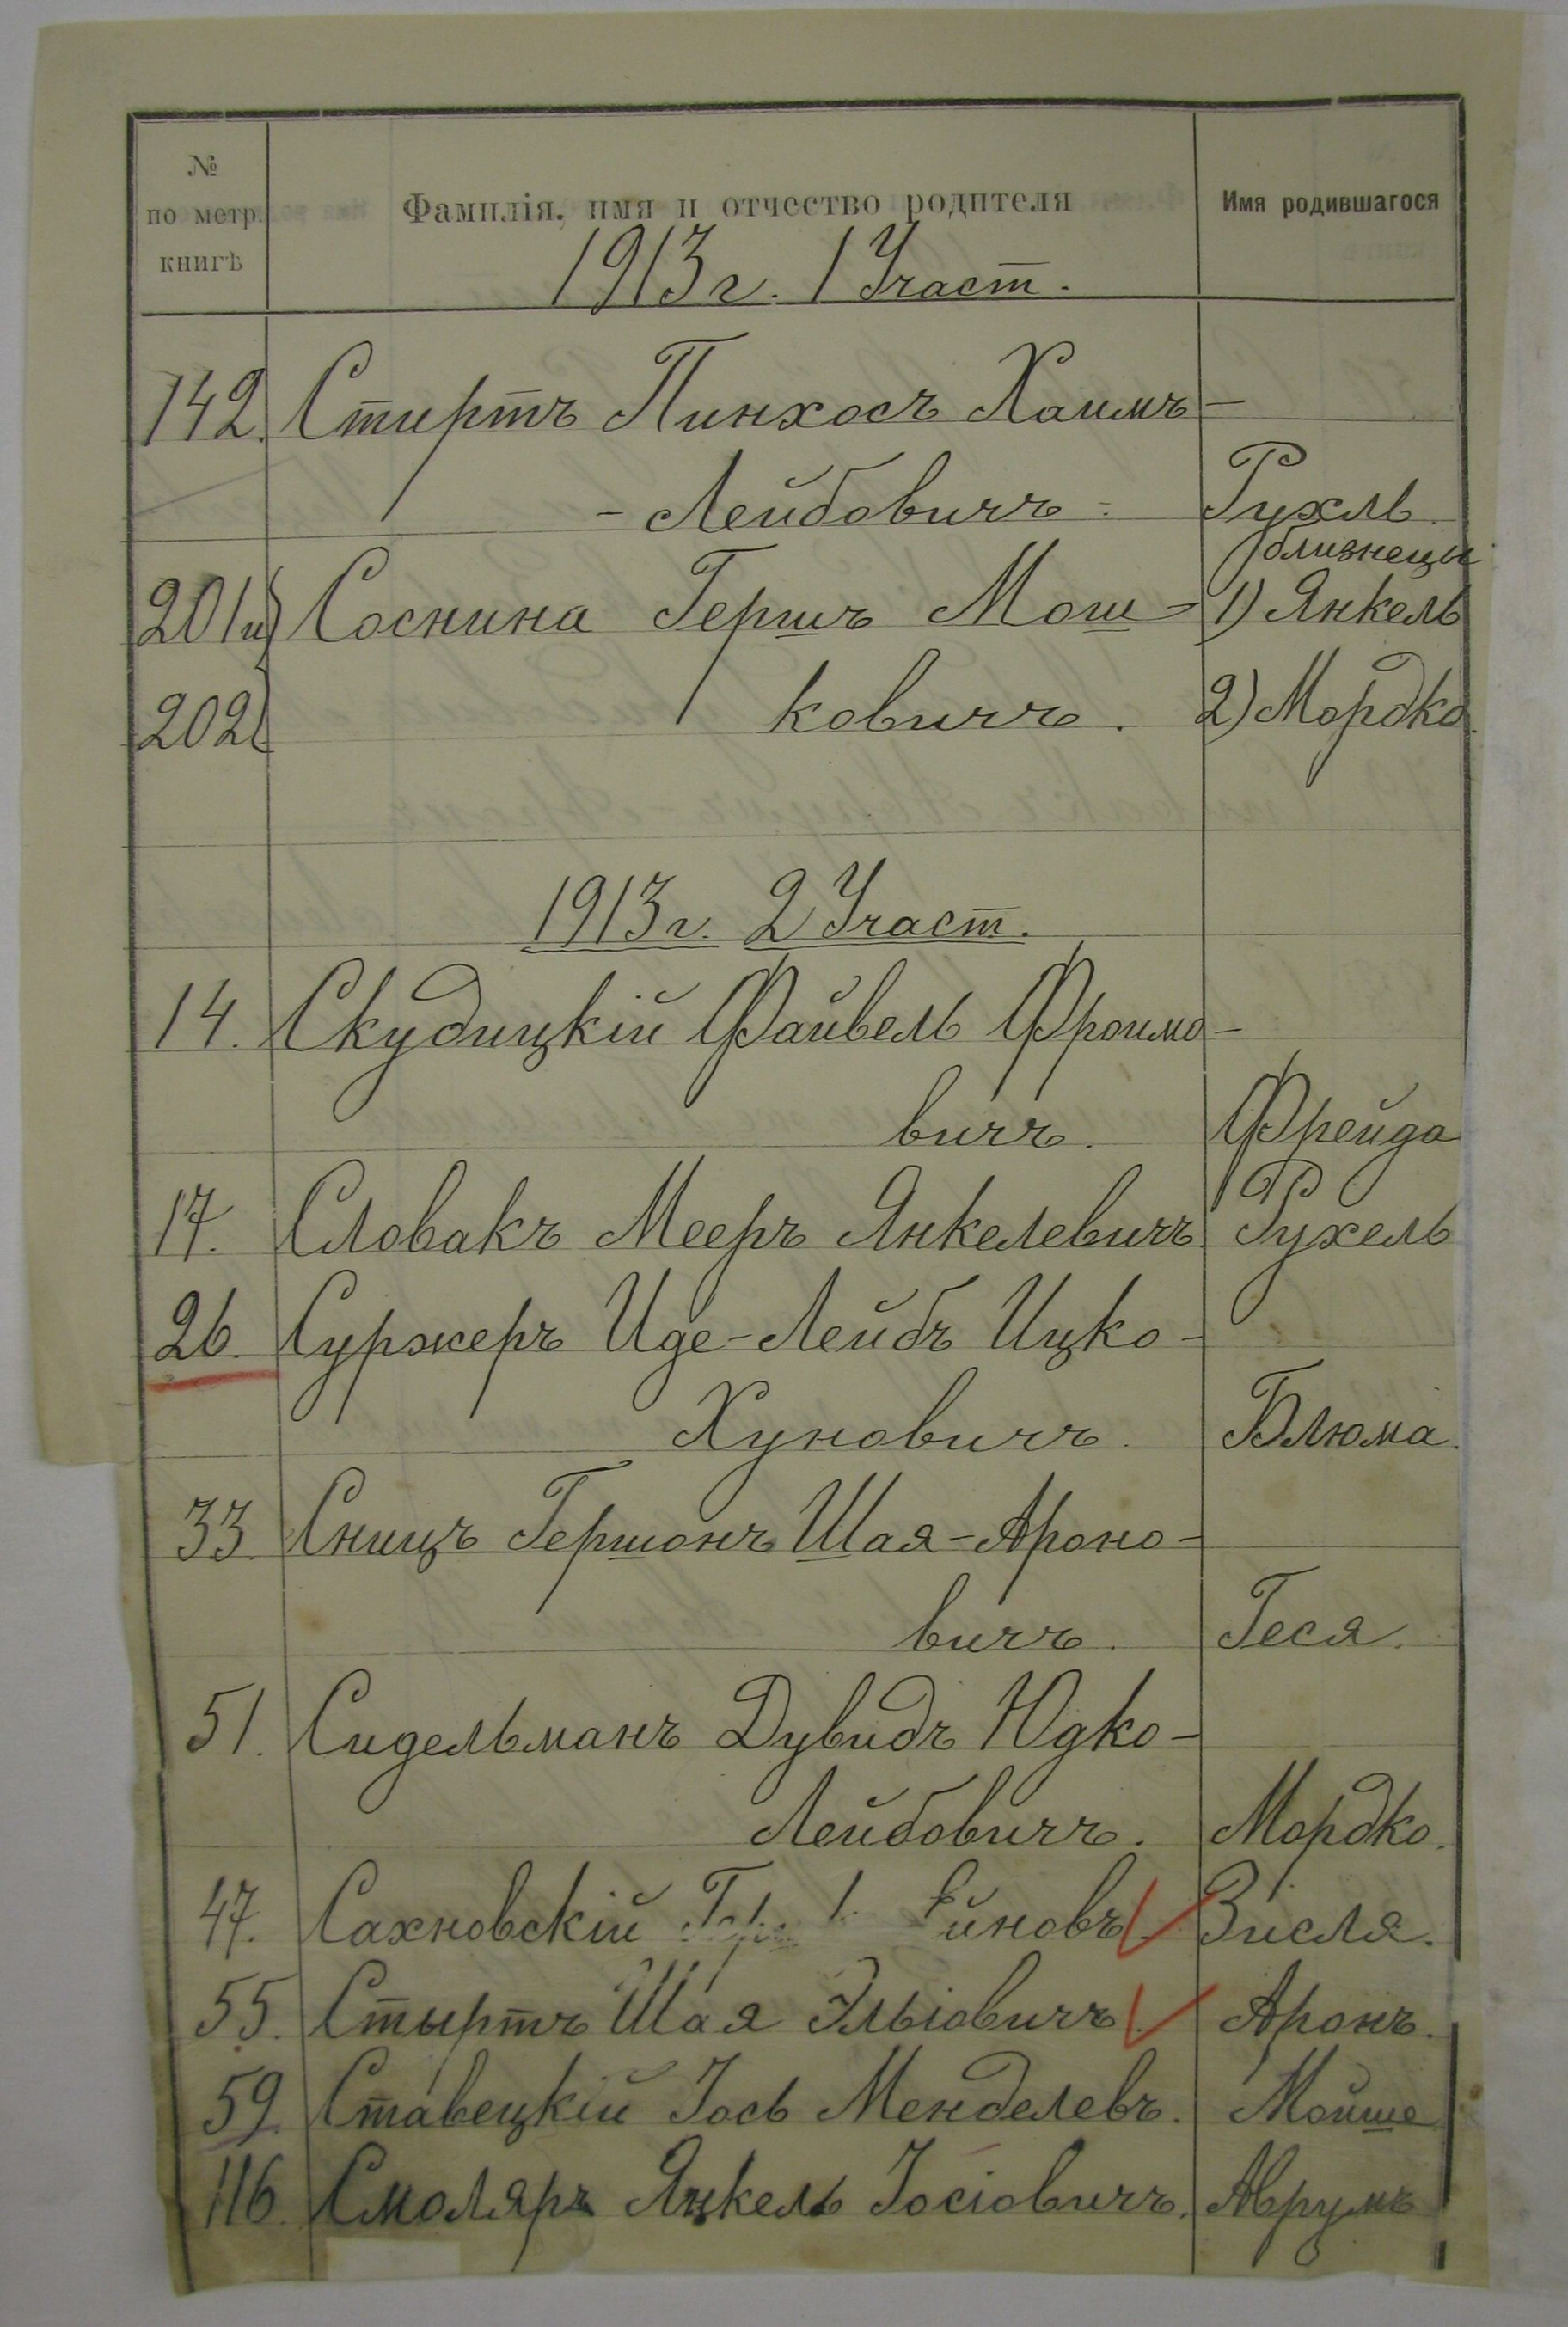 №
по метр.
книгѣ
Фамилія, имя и отчество родителя
Имя родившагося
1913 г. 1 Участ.
142. Стиртъ Пинхосъ Хаимъ-
-Лейбовичъ - Рухль.
близнецы
201 и Соснина Гершъ Мош= 1) Янкель
202 ковичъ. 2) Мордко.
1913 г. 2 Участ.
14. Скудицкій Файвель Фроимо-
вичъ. Фрейда
17. Словакъ Мееръ Янкелевичъ Рухель
26. Суржеръ Иде-Лейбъ Ицко-
Хуновичъ. Блюма.
33. Сницъ Гершонъ Шая-Ароно-
вичъ. Геся.
51. Сидельманъ Дувидъ Юдко-
Лейбовичъ. Мордко.
47. Сахновскій Зисля.
55. Стыртъ Шая Эльіовичъ. Аронъ.
59. Ставецкій Іось Менделевъ. Мойше
116. Смоляръ Янкель Іосіовичъ. Аврумъ